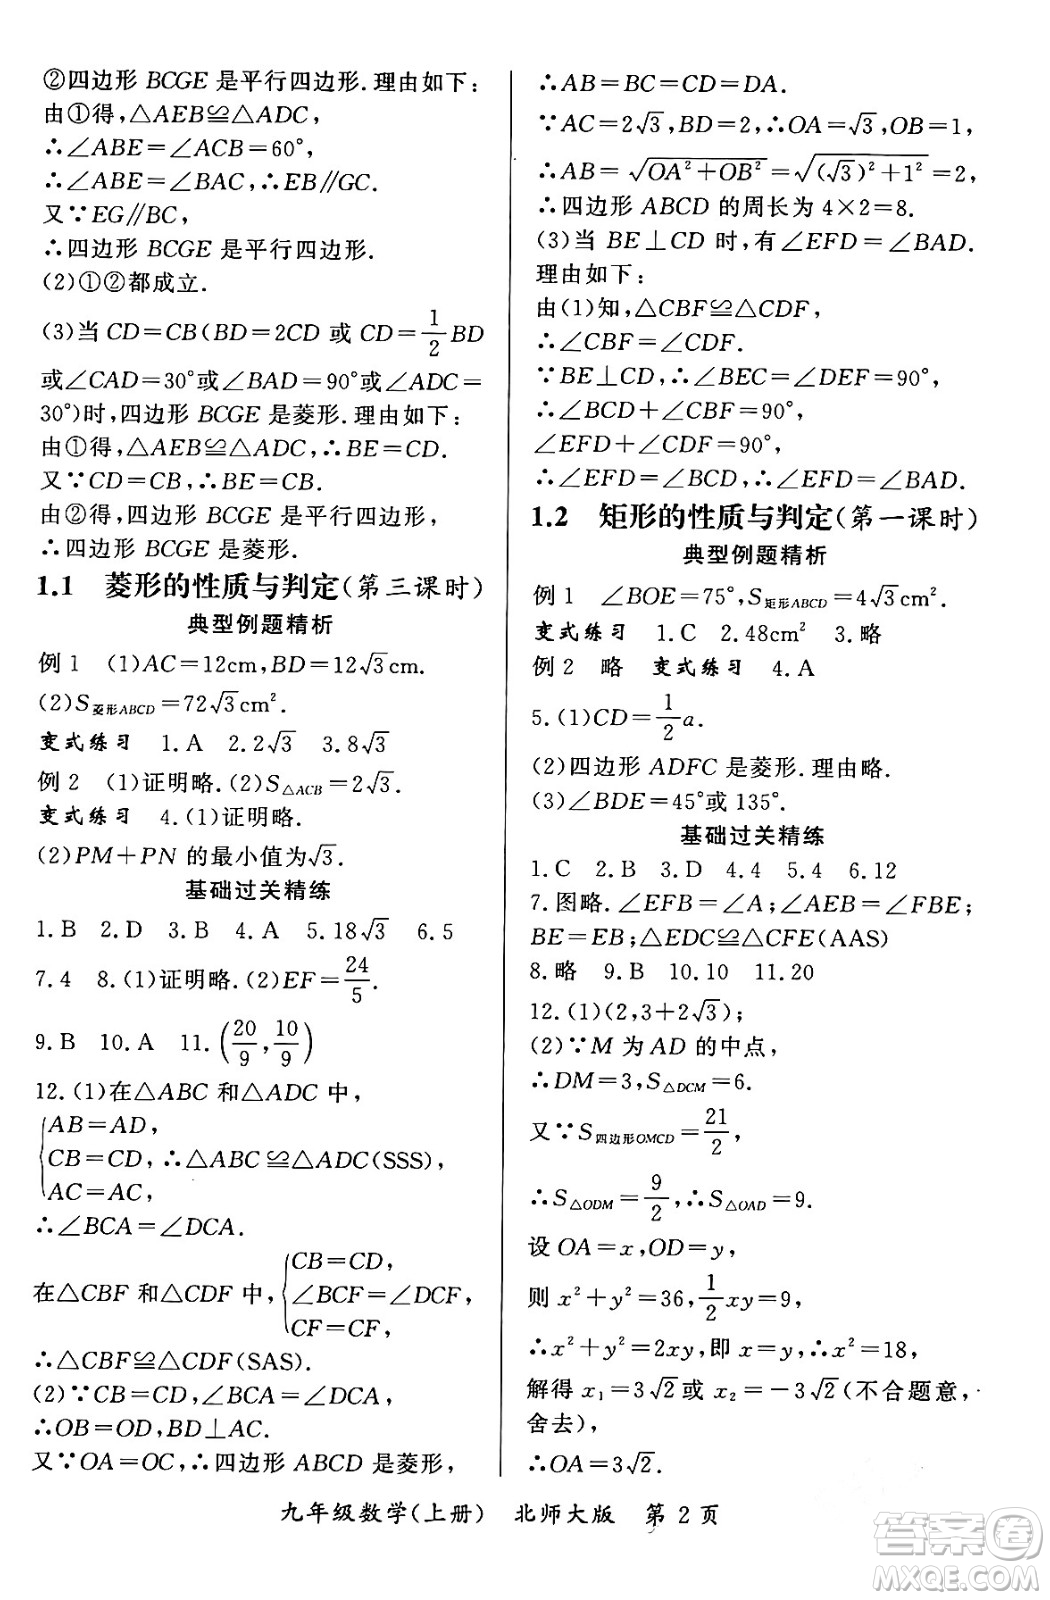 ②四边形 BCGE 是平行四边形.理由如下：
由①得，△AEB≌△ADC，
∴∠ABE＝∠ACB＝60°，
∴∠ABE＝∠BAC，∴EB∥GC.
又∵EG∥BC，
∴四边形 BCGE 是平行四边形.
(2)①②都成立.
(3)当 CD＝CB(BD＝2CD 或 CD＝1/2 BD
或∠CAD＝30°或∠BAD＝90°或∠ADC＝
30°)时，四边形 BCGE 是菱形.理由如下：
由①得，△AEB≌△ADC，∴BE＝CD.
又∵CD＝CB，∴BE＝CB.
由②得，四边形 BCGE 是平行四边形，
∴四边形 BCGE 是菱形.
1.1 菱形的性质与判定(第三课时)
典型例题精析
例 1 (1)AC＝12cm，BD＝12√3cm.
(2)S菱形ABCD＝72√3cm².
变式练习 1.A 2.2√3 3.8√3
例 2 (1)证明略.(2)S△ACB＝2√3.
变式练习 4.(1)证明略.
(2)PM＋PN 的最小值为√3.
基础过关精练
1.B 2.D 3.B 4.A 5.18√3 6.5
7.4 8.(1)证明略.(2)EF＝24/5.
9.B 10.A 11.(20/9, 10/9)
12.(1)在△ABC 和△ADC 中，
AB＝AD，
CB＝CD，∴△ABC≌△ADC(SSS)，
AC＝AC，
∴∠BCA＝∠DCA.
在△CBF 和△CDF 中，
CB＝CD，
∠BCF＝∠DCF，
CF＝CF，
∴△CBF≌△CDF(SAS).
(2)∵CB＝CD，∠BCA＝∠DCA，
∴OB＝OD，BD⊥AC.
又∵OA＝OC，∴四边形 ABCD 是菱形，
∴AB＝BC＝CD＝DA.
∵AC＝2√3，BD＝2，∴OA＝√3，OB＝1，
∴AB＝√(OA²＋OB²)＝√((√3)²＋1²)＝2，
∴四边形 ABCD 的周长为 4×2＝8.
(3)当 BE⊥CD 时，有∠EFD＝∠BAD.
理由如下：
由(1)知，△CBF≌△CDF，
∴∠CBF＝∠CDF.
∵BE⊥CD，∴∠BEC＝∠DEF＝90°，
∴∠BCD＋∠CBF＝90°，
∠EFD＋∠CDF＝90°，
∴∠EFD＝∠BCD，∴∠EFD＝∠BAD.
1.2 矩形的性质与判定(第一课时)
典型例题精析
例 1 ∠BOE＝75°，S矩形ABCD＝4√3cm².
变式练习 1.C 2.48cm² 3.略
例 2 略 变式练习 4.A
5.(1)CD＝1/2 a.
(2)四边形 ADFC 是菱形.理由略.
(3)∠BDE＝45°或 135°.
基础过关精练
1.C 2.B 3.D 4.4 5.4 6.12
7.图略.∠EFB＝∠A；∠AEB＝∠FBE；
BE＝EB；△EDC≌△CFE(AAS)
8.略 9.B 10.10 11.20
12.(1)(2,3＋2√3)；
(2)∵M 为 AD 的中点，
∴DM＝3，S△DCM＝6.
又∵S四边形OMCD＝21/2，
∴S△ODM＝9/2，∴S△OAD＝9.
设 OA＝x，OD＝y，
则 x²＋y²＝36，1/2 xy＝9，
∴x²＋y²＝2xy，即 x＝y，∴x²＝18，
解得 x₁＝3√2或 x₂＝－3√2(不合题意，
舍去)，
∴OA＝3√2.
九年级数学(上册) 北师大版 第 2 页
答案圈
MXQE.COM